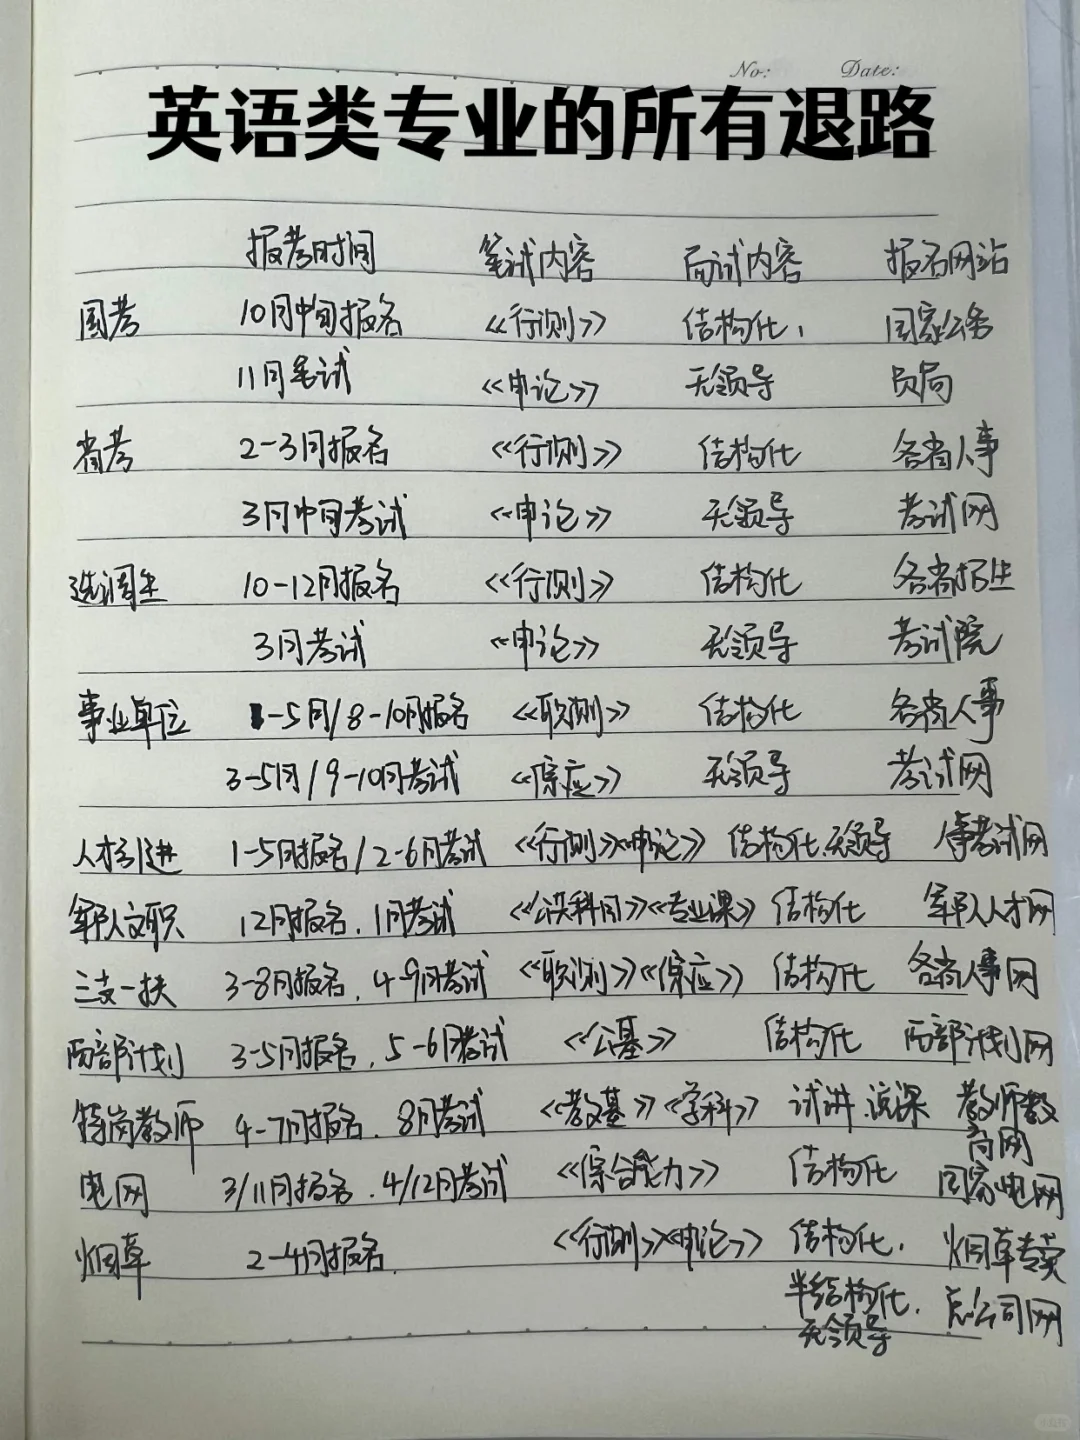 No: Date:
英语类专业的所有退路
报考时间 笔试内容 面试内容 报名网站
国考 10月中旬报名 《行测》 结构化, 国家公务
11月笔试 《申论》 无领导 员局
省考 2-3月报名 《行测》 结构化 各省人事
3月中旬考试 《申论》 无领导 考试网
选调生 10-12月报名 《行测》 结构化 各省招生
3月考试 《申论》 无领导 考试院
事业单位 1-5月/8-10月报名 《职测》 结构化 各省人事
3-5月/9-10月考试 《综应》 无领导 考试网
人才引进 1-5月报名/2-6月考试 《行测》《申论》 结构化.无领导 人事考试网
军队文职 12月报名.1月考试 《公共科目》《专业课》 结构化 军队人才网
三支一扶 3-8月报名.4-9月考试 《职测》《综应》 结构化 各省人事网
西部计划 3-5月报名.5-6月考试 《公基》 结构化 西部计划网
特岗教师 4-7月报名.8月考试 《教基》《学科》 试讲.说课 教师教
育网
电网 3/11月报名.4/12月考试 《综合能力》 结构化 国家电网
烟草 2-4月报名. 《行测》《申论》 结构化. 烟草专卖
半结构化. 总公司网
无领导